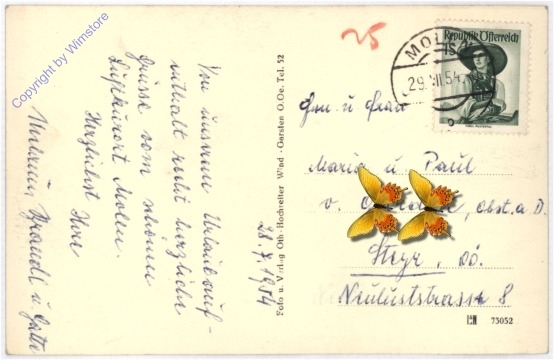 Copyright by Wimstore
Von unserem Urlaubauf-
enthalt recht herzliche
Grüsse vom schönen
Luftkurort Molln.
Herzlichst Ihre
u. Gatte
28.7.1954
Foto u. Verlag Oth. Hochreiter Wind - Garsten O.Oe. Tel. 52
25
MOLLN
29. VII. 54
Republik Österreich
1S
Frau u Frau
Maria u Paul
v. Obst. a. D.
Steyr, OÖ.
Neuluststrasse 8
73052